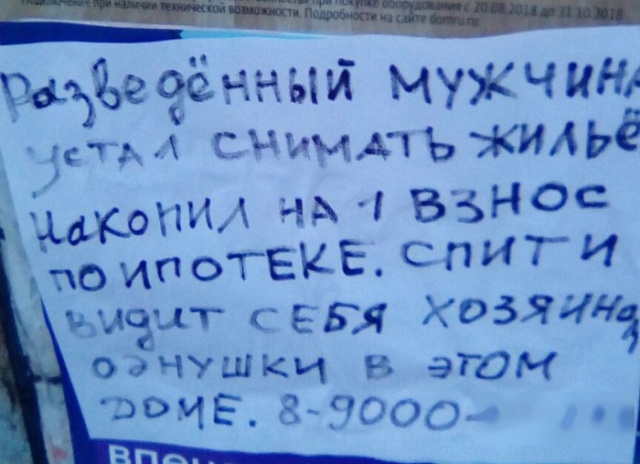 Подключение при наличии технической возможности. Подробности на сайте domru.ru
при покупке оборудования с 20.08.2018 до 31.10.2018
Разведённый мужчина
устал снимать жильё
накопил на 1 взнос
по ипотеке. Спит и
видит себя хозяином
однушки в этом
доме. 8-9000-